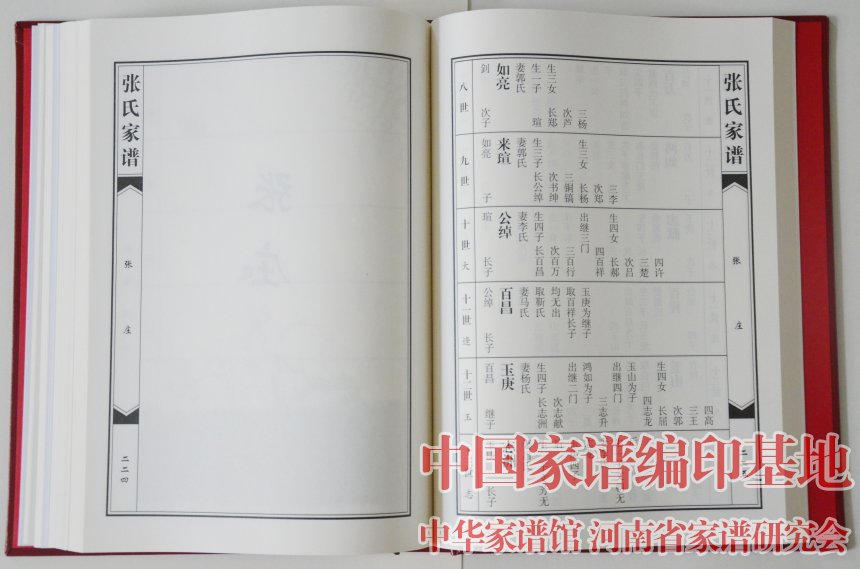 张氏家谱
张庄
二二四
八世
钊 次子
如亮
妻郭氏
生一子 瑄
生三女 长郑
次芦
三杨
九世
如亮 子
来瑄
妻郭氏
生三子 长公绰
次书绅
三铜镐
生三女 长杨
次郑
三李
十世大
瑄 长子
公绰
妻李氏
生四子 长百昌
次百万
三百行
出继三门
四百祥
生四女 长郝
次吕
三楚
四许
十一世逢
公绰 长子
百昌
妻马氏
取靳氏
均无出
取百祥长子
玉庚为继子
十二世玉
百昌 继子
玉庚
妻杨氏
生四子 长志洲
次志献
出继二门
鸿如为子
三志升
出继四门
玉山为子
四志龙
生四女 长屈
次郭
三王
四高
世志
长子
张氏家谱
张庄
中国家谱编印基地
中华家谱馆 河南省家谱研究会